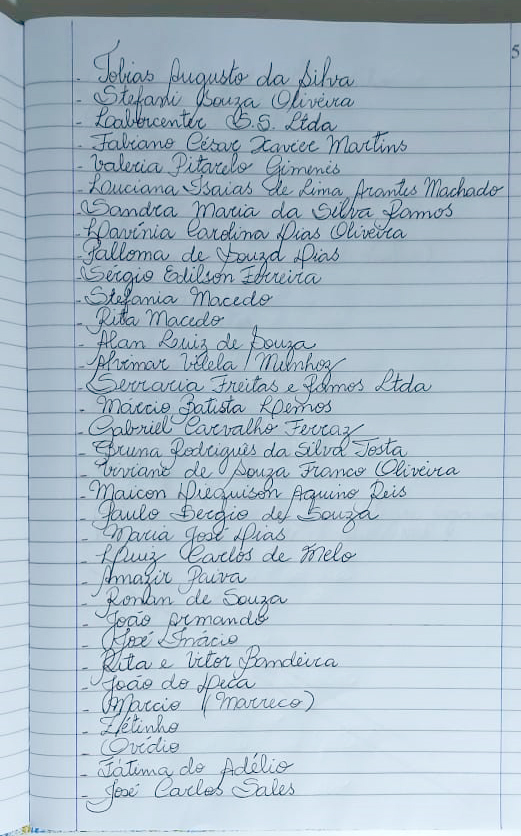 5
- Tobias Augusto da Silva
- Stefani Souza Oliveira
- Laborcenter S.S. Ltda
- Fabiano César Xavier Martins
- Valeria Pitarelo Gimenis
- Luciana Isaias de Lima Arantes Machado
- Sandra Maria da Silva Ramos
- Lavínia Carolina Dias Oliveira
- Palloma de Souza Dias
- Sérgio Edilson Ferreira
- Stefania Macedo
- Rita Macedo
- Alan Luiz de Souza
- Alvimar Vilela Munhoz
- Serraria Freitas e Ramos Ltda
- Márcio Batista Lemos
- Gabriel Carvalho Ferraz
- Bruna Rodrigues da Silva Josta
- Viviane de Souza Franco Oliveira
- Maicon Dieguison Aquino Reis
- Paulo Sergio de Souza
- Maria José Dias
- Luiz Carlos de Melo
- Amazir Paiva
- Ronan de Souza
- João Armando
- José Inácio
- Rita e Vitor Bandeira
- João do
- Marcio (Marreco)
- Zétinho
- Ovídio
- Fátima do Adélio
- José Carlos Sales